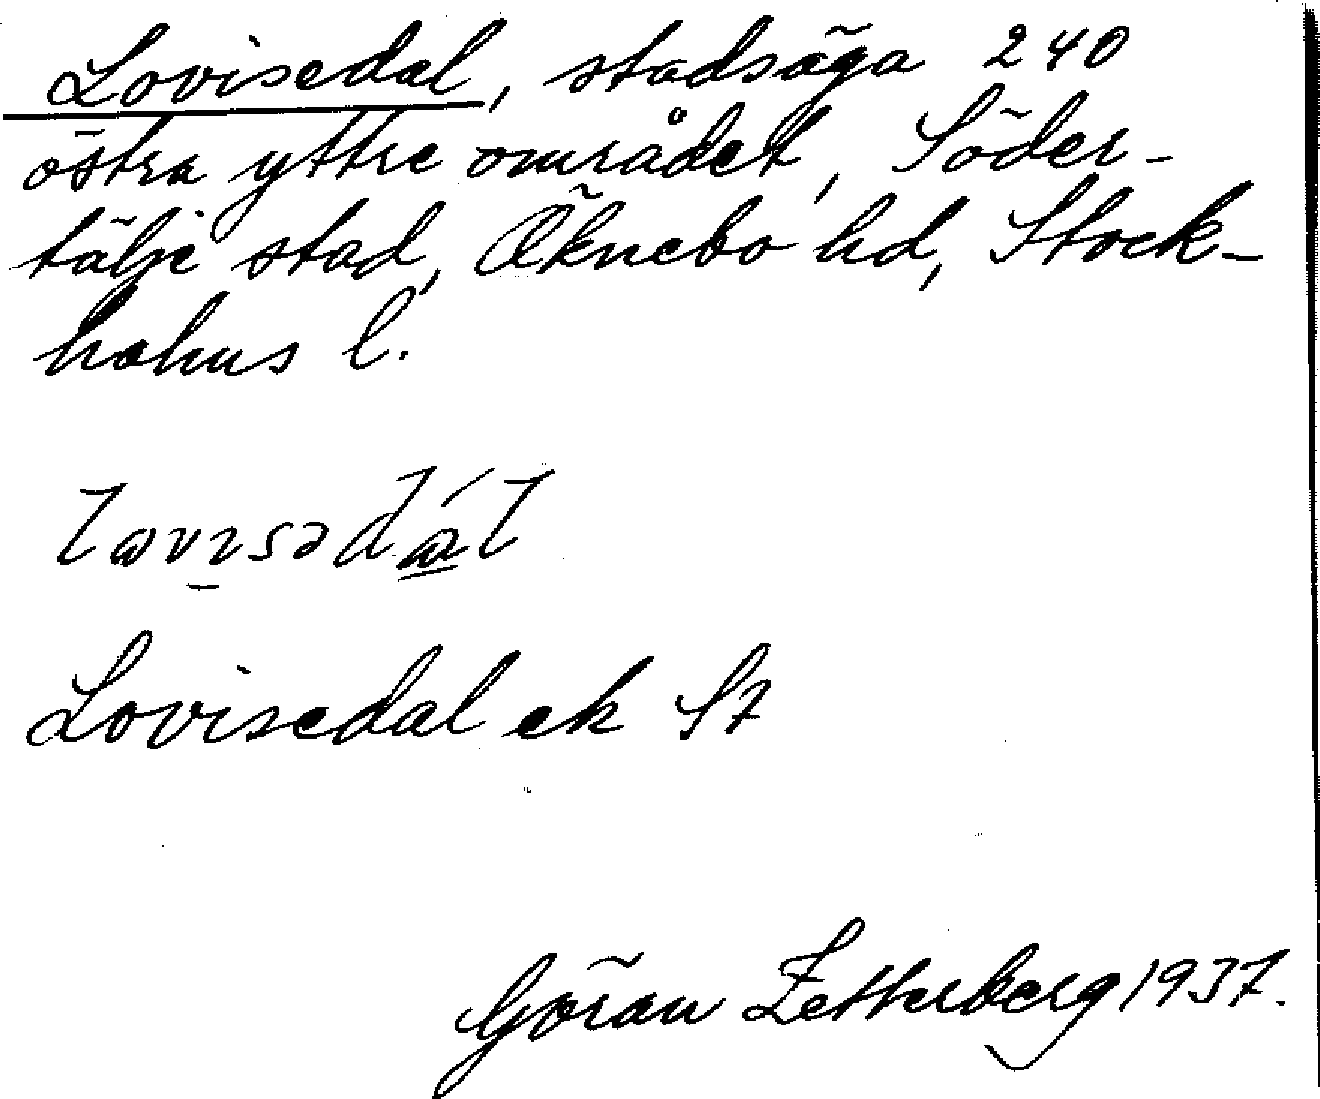 Lovisedal, stadsäga 240
östra yttre området, Söder-
tälje stad, Öknebo hd, Stock-
holms l.
Lovisedal ek St
Göran Zetterberg 1937.